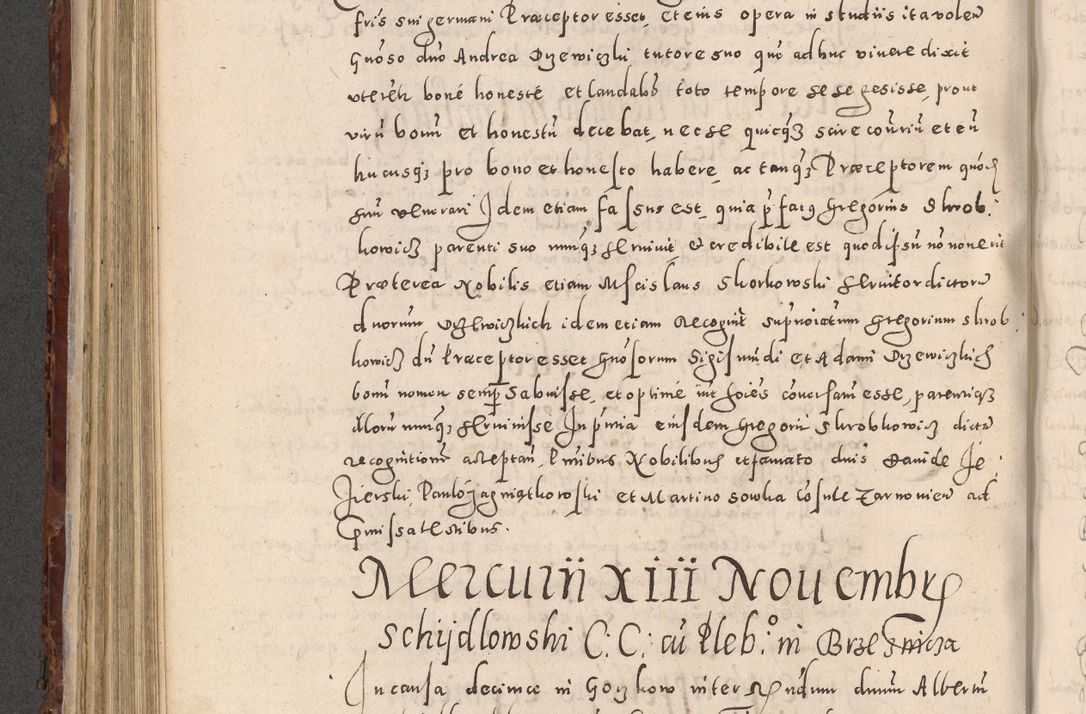 fris sui germani Præceptor esset, et eius opera in studiis ita volen
Gnoso dno Andrea Dzewiczki tutore suo qui adhuc vivere dixit
bone honeste et laudabr toto tempore se se gesisse, prout
virū bonū et honestū decebat, nec se quicqz scire contriū et eū
hucusqz pro bono et honesto habere, ac tanqz Præceptorem
suū venerari Idem etiam fassus est, quia p fatg Gregorius Skrob:
kowicz parenti suo nunqz servivit et credibile est quod ipsū nō noverit
Præterea Nobilis etiam Mscislaus Skorkowski servitor dictorū
duorum Dzewiczkich idem etiam recognit supnoiatum Gregorium Skrob:
kowicz dū Præceptor esset Gnosorum Sigismundi et Adami Dzewiczkich
bonū nomen semp habuisse, et optime int hoies conversatū esse, parentiqz
illorū nunqz servivisse In pntia eiusdem Gregorii Skrobkowicz dictā
recognitionē acceptan, Pntibus Nobilibus et famato dnis Davide Je:
Jierski, Paulo Jagniątkowski et Martino Sowka Cosule Zarnovien ad
pmissa testibus.
Mercurii XIII Novembrs
Schijdlowski C: C: cū Pleb: in Brzeznicza
In causa decimæ in Gozkow inter Rndum dnum Albertū